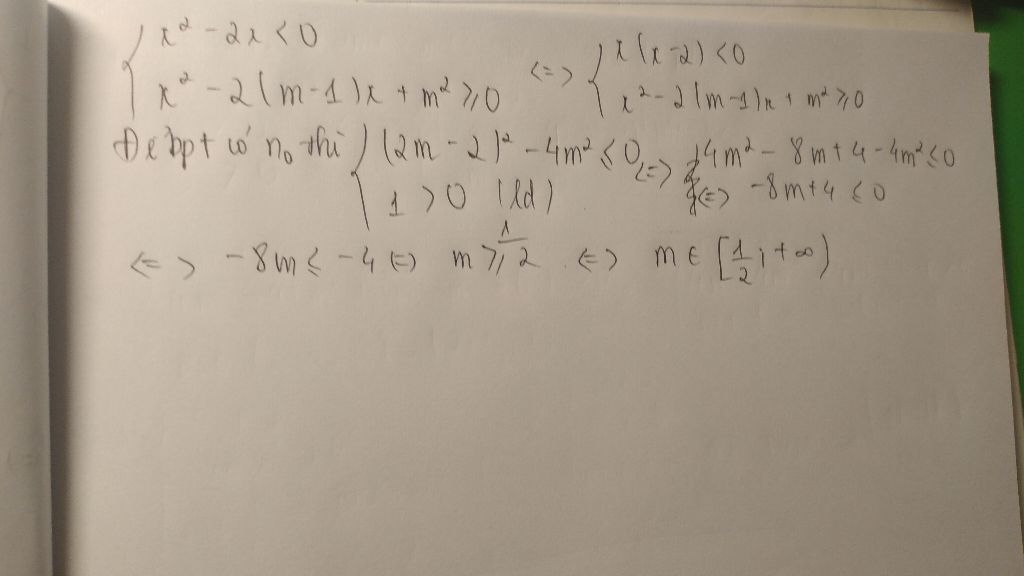 { x² - 2x < 0
{ x² - 2(m-1)x + m² ⩾ 0 <=> { x(x-2) < 0
{ x² - 2(m-1)x + m² ⩾ 0
Để bpt có n₀ thì { (2m - 2)² - 4m² ⩽ 0 <=> 4m² - 8m + 4 - 4m² ⩽ 0
{ 1 > 0 (lđ) <=> -8m + 4 ⩽ 0
<=> -8m ⩽ -4 <=> m ⩾ 1/2 <=> m ∈ [1/2; +∞)